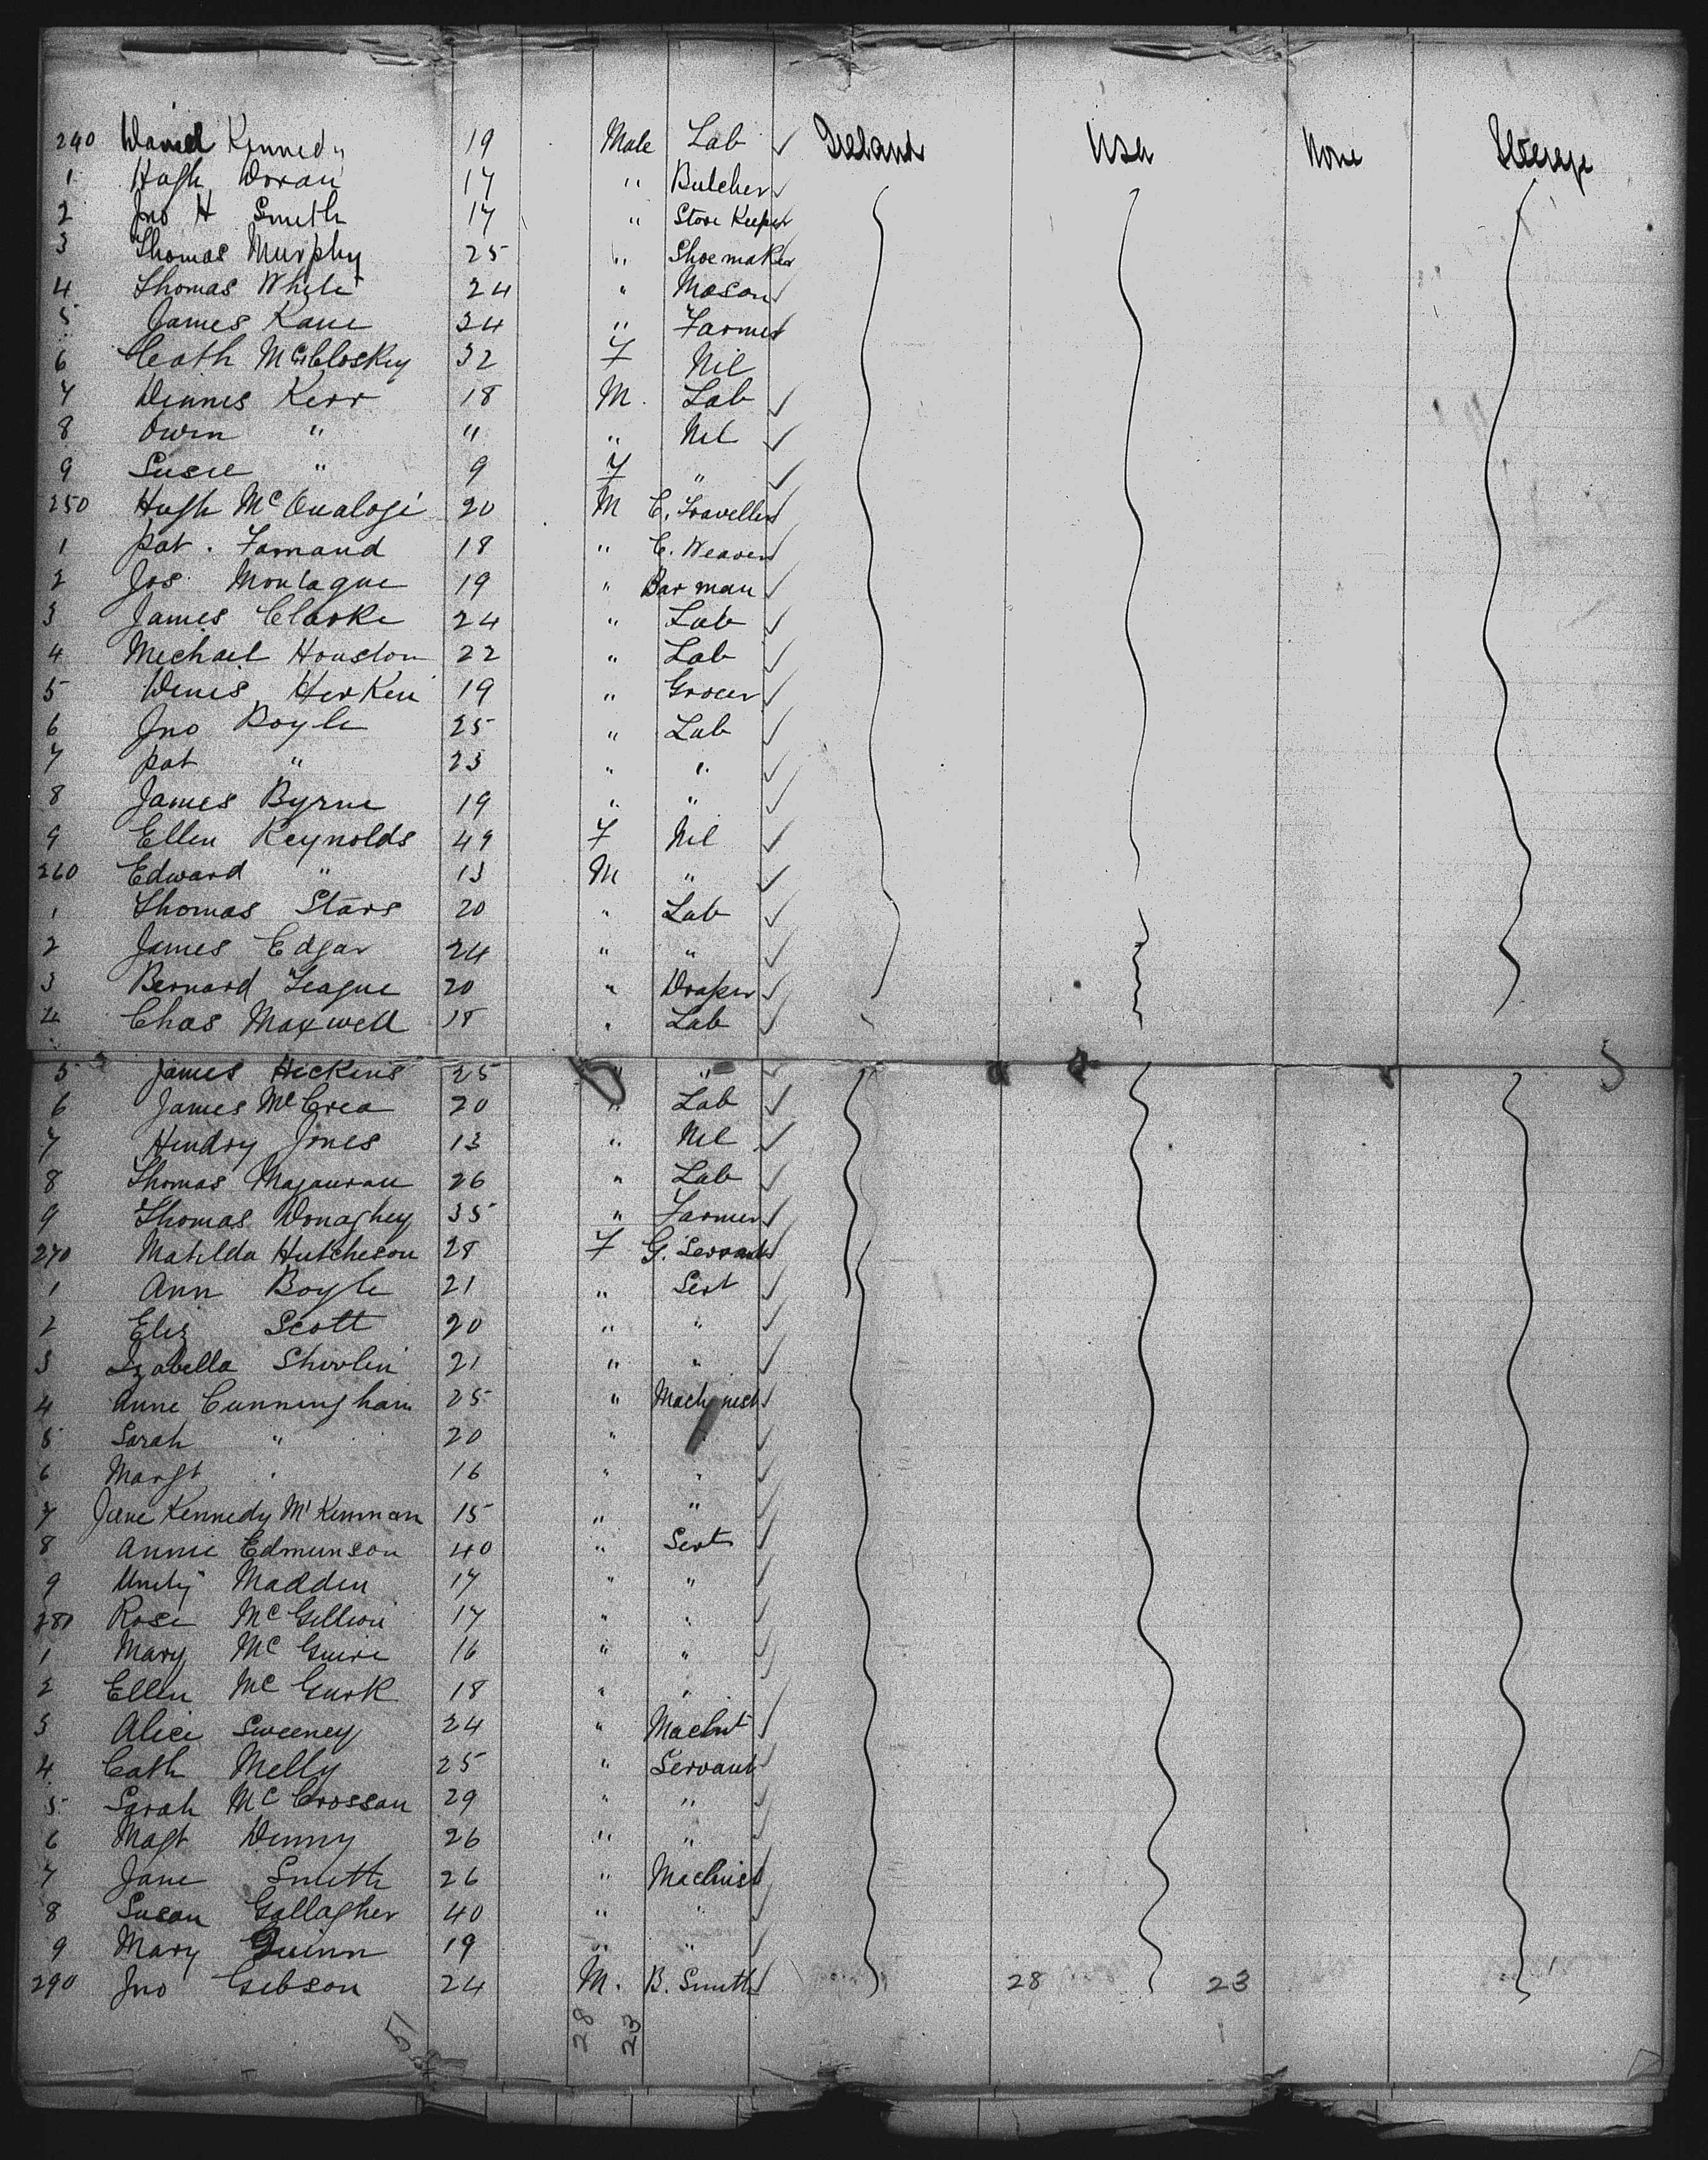 240 Daniel Kennedy 19 Male Lab Ireland USA None Steerage
1 Hugh Doran 17 " Butcher
2 Jno H Smith 17 " Store Keeper
3 Thomas Murphy 25 " Shoemaker
4 Thomas White 24 " Mason
5 James Kane 24 " Farmer
6 Cath McCloskey 32 F Nil
7 Dinnis Kerr 18 M. Lab
8 Owen " " " Nil
9 Susie " 9 F "
250 Hugh Mc 20 M C. Traveller
1 Pat. 18 " C. Weaver
2 Jos Montague 19 " Bar man
3 James Clarke 24 " Lab
4 Michael Houston 22 " Lab
5 Denis Herken 19 " Grocer
6 Jno Boyle 25 " Lab
7 Pat " 23 " "
8 James Byrne 19 " "
9 Ellen Reynolds 49 F Nil
260 Edward " 13 M "
1 Thomas Stars 20 " Lab
2 James Edgar 24 " "
3 Bernard Teague 20 " Draper
4 Chas Maxwell 18 " Lab
5 James Hickens 25 " "
6 James McCrea 20 " Lab
7 Hendry Jones 13 " Nil
8 Thomas Magauran 26 " Lab
9 Thomas Donaghey 35 " Farmer
270 Matilda Hutcheson 28 F G. Servant
1 Ann Boyle 21 " Sert
2 Eliz Scott 20 " "
3 Izabella Shovlin 21 " "
4 Anne Cunningham 25 " Machinest
5 Sarah " 20 " "
6 Margt " 16 " "
7 Jane Kennedy McKinnan 15 " "
8 Annie Edmunson 40 " Sert
9 Unity Madden 17 " "
280 Rose McGillion 17 " "
1 Mary McGuire 16 " "
2 Ellen McGurk 18 " "
3 Alice Sweeney 24 " Machnt
4 Cath Melly 25 " Servant
5 Sarah McCrossan 29 " "
6 Magt Denny 26 " "
7 Jane Smith 26 " Machnist
8 Susan Gallagher 40 " "
9 Mary Quinn 19 " "
290 Jno Gibson 24 M. B. Smith 28 23
51 28 23